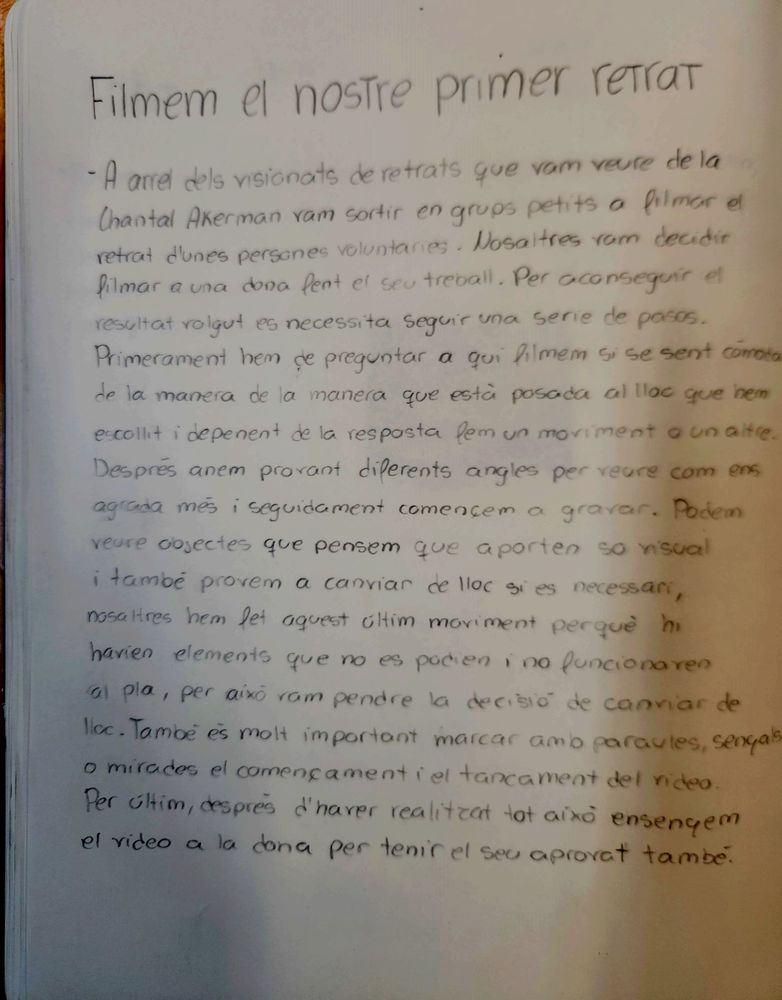 Filmem el nostre primer retrat
- A arrel dels visionats de retrats que vam veure de la
Chantal Akerman vam sortir en grups petits a filmar el
retrat d'unes persones voluntaries. Nosaltres vam decidir
filmar a una dona fent el seu treball. Per aconseguir el
resultat volgut es necessita seguir una serie de pasos.
Primerament hem de preguntar a qui filmem si se sent còmoda
de la manera de la manera que està posada al lloc que hem
escollit i depenent de la resposta fem un moviment o un altre.
Després anem provant diferents angles per veure com ens
agrada més i seguidament començem a gravar. Podem
veure objectes que pensem que aporten so visual
i també provem a canviar de lloc si es necessari,
nosaltres hem fet aquest últim moviment perquè hi
havien elements que no es podien i no funcionaven
al pla, per això vam pendre la decisió de canviar de
lloc. També és molt important marcar amb paraules, senyals
o mirades el començament i el tancament del video.
Per últim, després d'haver realitzat tot això ensenyem
el video a la dona per tenir el seu aprovat també.